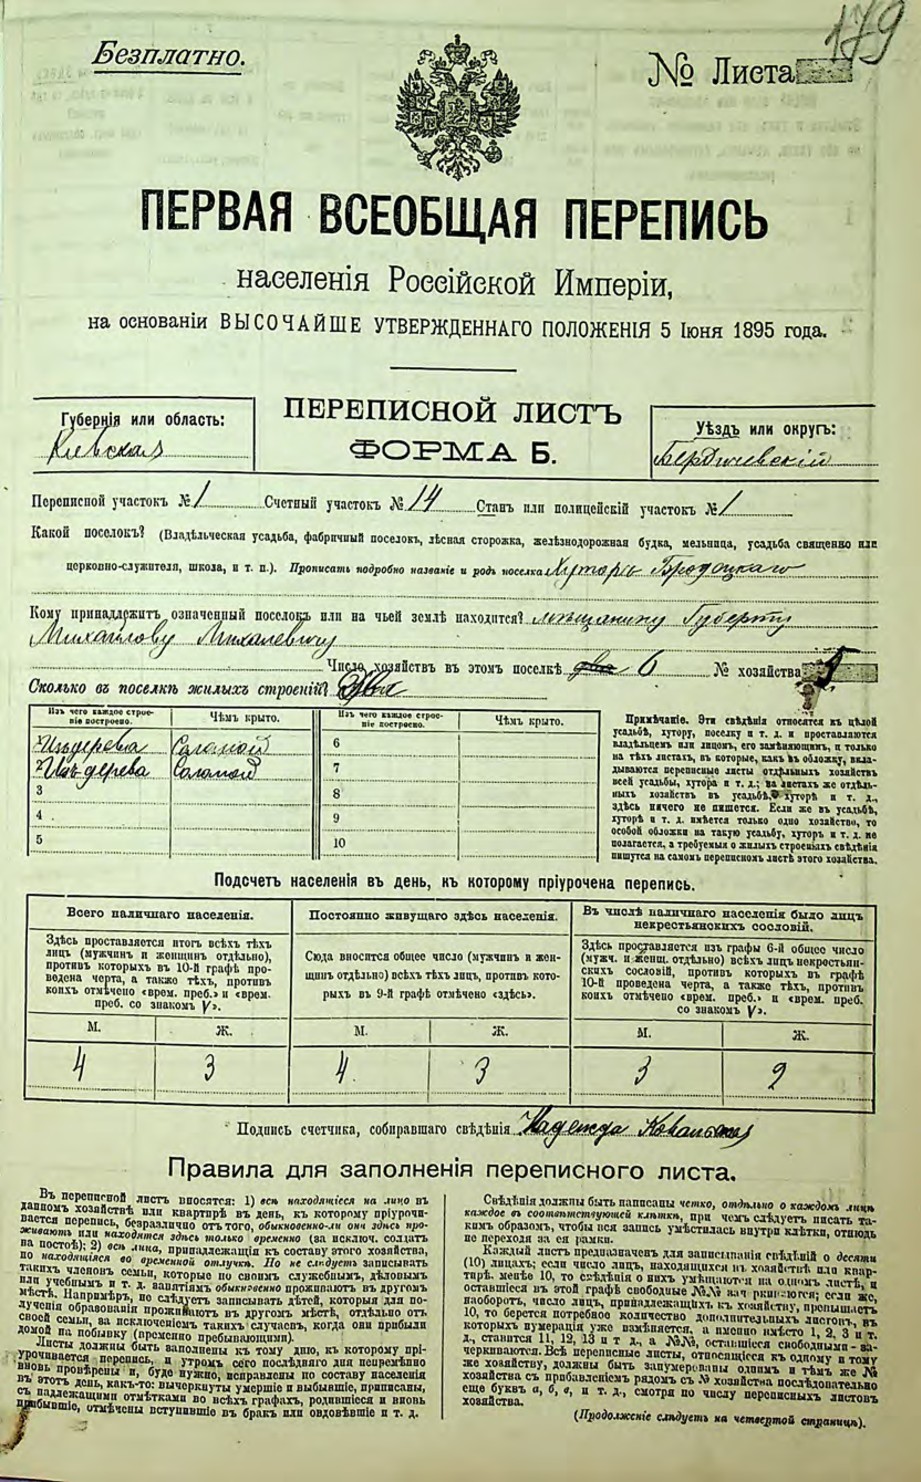 179
Безплатно.
№ Листа
ПЕРВАЯ ВСЕОБЩАЯ ПЕРЕПИСЬ
населенія Россійской Имперіи,
на основаніи ВЫСОЧАЙШЕ УТВЕРЖДЕННАГО ПОЛОЖЕНІЯ 5 Іюня 1895 года.
Губернія или область:
Кіевская
ПЕРЕПИСНОЙ ЛИСТЪ
ФОРМА Б.
Уѣздъ или округъ:
Бердичевскій
Переписной участокъ № 1 Счетный участокъ № 14 Станъ или полицейскій участокъ № 1
Какой поселокъ? (Владѣльческая усадьба, фабричный поселокъ, лѣсная сторожка, желѣзнодорожная будка, мельница, усадьба священно или
церковно-служителя, школа, и т. п.). Прописать подробно названіе и родъ поселка Хуторъ Городоцкаго
Кому принадлежитъ означенный поселокъ или на чьей землѣ находится? мѣщанину Губерту
Михайлову Михалевичу
Число хозяйствъ въ этомъ поселкѣ два 6 № хозяйства 5
Сколько въ поселкѣ жилыхъ строеній? Два
Изъ чего каждое строе-
ніе построено.
Чѣмъ крыто.
Изъ чего каждое строе-
ніе построено.
Чѣмъ крыто.
Изъ дерева Соломой 6
Изъ дерева Соломой 7
3 8
4 9
5 10
Примѣчаніе. Эти свѣдѣнія относятся къ цѣлой
усадьбѣ, хутору, поселку и т. д. и проставляются
владѣльцемъ или лицомъ, его замѣняющимъ, и только
на тѣхъ листахъ, въ которые, какъ въ обложку, вкла-
дываются переписные листы отдѣльныхъ хозяйствъ
всей усадьбы, хутора и т. д.; на листахъ же отдѣль-
ныхъ хозяйствъ въ усадьбѣ, хуторѣ и т. д.,
здѣсь ничего не пишется. Если же въ усадьбѣ,
хуторѣ и т. д. имѣется только одно хозяйство, то
особой обложки на такую усадьбу, хуторъ и т. д. не
полагается, а требуемыя о жилыхъ строеніяхъ свѣдѣнія
пишутся на самомъ переписномъ листѣ этого хозяйства.
Подсчетъ населенія въ день, къ которому пріурочена перепись.
Всего наличнаго населенія.
Здѣсь проставляется итогъ всѣхъ тѣхъ
лицъ (мужчинъ и женщинъ отдѣльно),
противъ которыхъ въ 10-й графѣ про-
ведена черта, а также тѣхъ, противъ
коихъ отмѣчено «врем. преб.» и «врем.
преб. со знакомъ V».
Постоянно живущаго здѣсь населенія.
Сюда вносится общее число (мужчинъ и жен-
щинъ отдѣльно) всѣхъ тѣхъ лицъ, противъ кото-
рыхъ въ 9-й графѣ отмѣчено «здѣсь».
Въ числѣ наличнаго населенія было лицъ
некрестьянскихъ сословій.
Здѣсь проставляется изъ графы 6-й общее число
(мужч. и женщ. отдѣльно) всѣхъ лицъ некрестьян-
скихъ сословій, противъ которыхъ въ графѣ
10-й проведена черта, а также тѣхъ, противъ
коихъ отмѣчено «врем. преб.» и «врем. преб.
со знакомъ V».
М. Ж. М. Ж. М. Ж.
4 3 4 3 3 2
Подпись счетчика, собиравшаго свѣдѣнія Надежда
Правила для заполненія переписного листа.
Въ переписной листъ вносятся: 1) всѣ находящіеся на лицо въ
данномъ хозяйствѣ или квартирѣ въ день, къ которому пріурочи-
вается перепись, безразлично отъ того, обыкновенно-ли они здѣсь про-
живаютъ или находятся здѣсь только временно (за исключ. солдатъ
на постоѣ); 2) всѣ лица, принадлежащія къ составу этого хозяйства,
но находящіяся во временной отлучкѣ. Но не слѣдуетъ записывать
такихъ членовъ семьи, которые по своимъ служебнымъ, дѣловымъ
или учебнымъ и т. д. занятіямъ обыкновенно проживаютъ въ другомъ
мѣстѣ. Напримѣръ, не слѣдуетъ записывать дѣтей, которыя для по-
лученія образованія проживаютъ въ другомъ мѣстѣ, отдѣльно отъ
своей семьи, за исключеніемъ такихъ случаевъ, когда они прибыли
домой на побывку (временно пребывающими).
Листы должны быть заполнены къ тому дню, къ которому прі-
урочивается перепись, и утромъ сего послѣдняго дня непремѣнно
вновь провѣрены и, буде нужно, исправлены по составу населенія
въ этотъ день, какъ-то: вычеркнуты умершіе и выбывшіе, приписаны,
съ надлежащими отмѣтками во всѣхъ графахъ, родившіеся и вновь
прибывшіе, отмѣчены вступившіе въ бракъ или овдовѣвшіе и т. д.
Свѣдѣнія должны быть написаны четко, отдѣльно о каждомъ лицѣ
каждое въ соотвѣтствующей клѣткѣ, при чемъ слѣдуетъ писать та-
кимъ образомъ, чтобы вся запись умѣстилась внутри клѣтки, отнюдь
не переходя за ея рамки.
Каждый листъ предназначенъ для записыванія свѣдѣній о десяти
(10) лицахъ; если число лицъ, находящихся въ хозяйствѣ или квар-
тирѣ, менѣе 10, то свѣдѣнія о нихъ умѣщаются на одномъ листѣ, и
оставшіеся въ этой графѣ свободные №№ зачеркиваются; если же,
наоборотъ, число лицъ, принадлежащихъ къ хозяйству, превышаетъ
10, то берется потребное количество дополнительныхъ листовъ, въ
которыхъ нумерація уже измѣняется, а именно вмѣсто 1, 2, 3 и т.
д., ставится 11, 12, 13 и т. д., а №№, оставшіеся свободными - за-
черкиваются. Всѣ переписные листы, относящіеся къ одному и тому
же хозяйству, должны быть занумерованы однимъ и тѣмъ же №
хозяйства съ прибавленіемъ рядомъ съ № хозяйства послѣдовательно
еще буквъ а, б, в, и т. д., смотря по числу переписныхъ листовъ
хозяйства.
(Продолженіе слѣдуетъ на четвертой страницѣ).